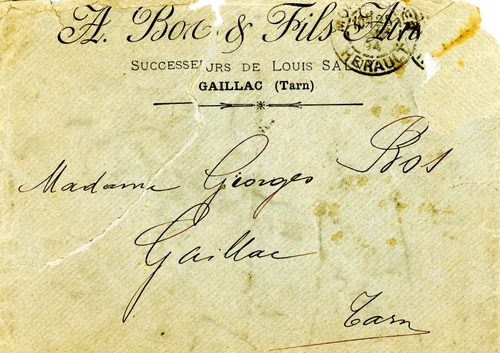 & Fils
SUCCESSEURS DE LOUIS
GAILLAC (Tarn)
HERAULT
Madame Georges Bos
Gaillac
Tarn